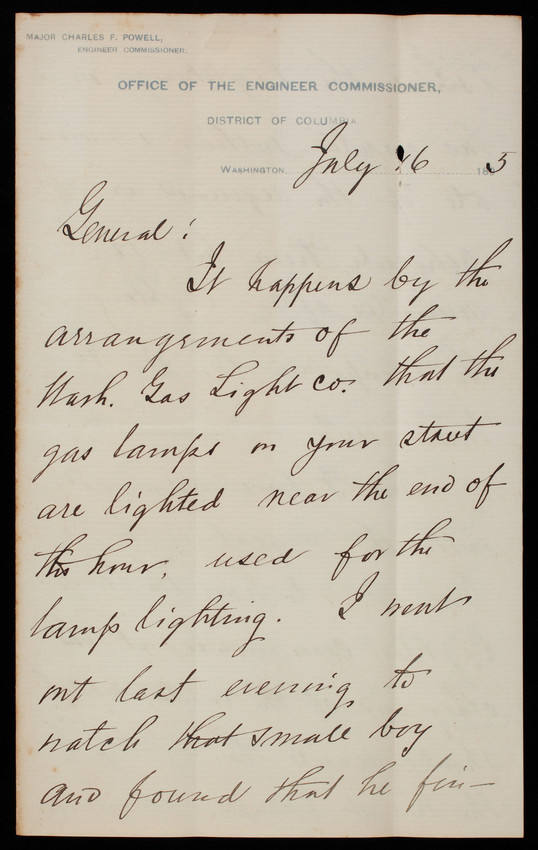 MAJOR CHARLES F. POWELL,
ENGINEER COMMISSIONER.
OFFICE OF THE ENGINEER COMMISSIONER,
DISTRICT OF COLUMBIA
WASHINGTON, July 16 1895
General:
It happens by the
arrangements of the
Wash. Gas Light Co. that the
gas lamps on your street
are lighted near the end of
the hour, used for the
lamp lighting. I went
out last evening to
watch that small boy
and found that he fin-